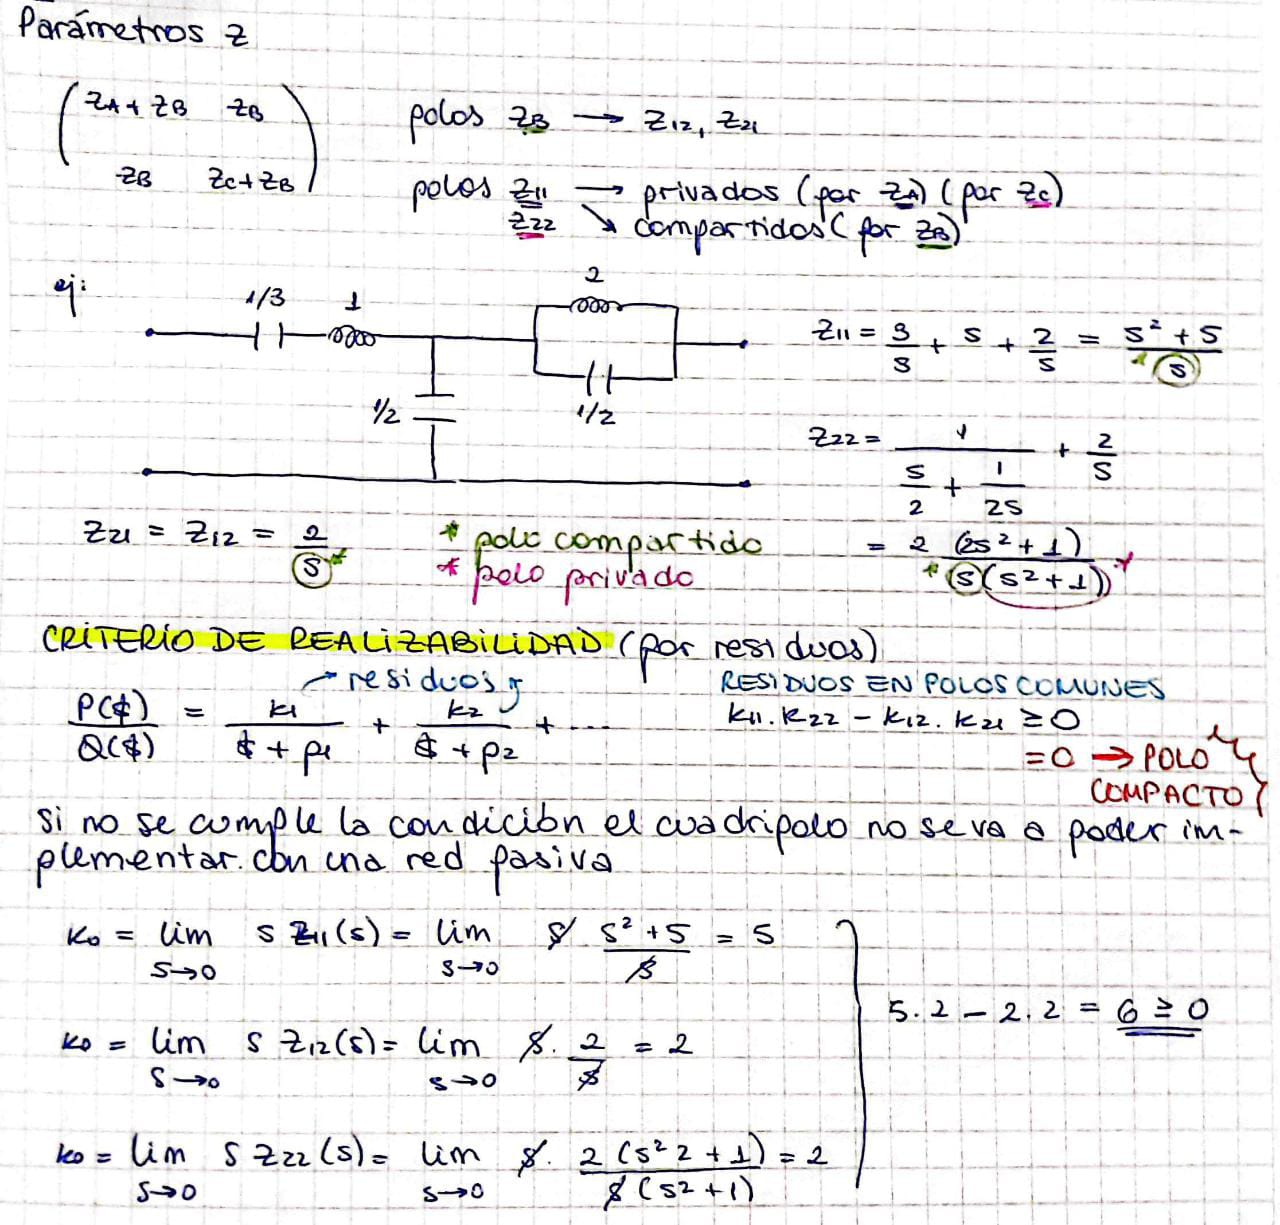 Parámetros z
( ZA + ZB   ZB )   polos ZB → Z12, Z21
( ZB   ZC + ZB )   polos Z11 → privados (por ZA) (por ZC)
Z22 ↘ compartidos (por ZB)
ej:
1/3   1   2
1/2   1/2
Z11 = 3/s + s + 2/s = (s² + 5)/s
Z22 = 1/(s/2 + 1/2s) + 2/s
Z21 = Z12 = 2/s *   * polo compartido   = 2 (2s² + 1)/(s (s² + 1))
* polo privado
CRITERIO DE REALIZABILIDAD (por residuos)
→ residuos   RESIDUOS EN POLOS COMUNES
P($)/Q($) = k1/($ + p1) + k2/($ + p2) + ....   k11 . k22 - k12 . k21 ≥ 0
= 0 → POLO
COMPACTO
Si no se cumple la condición el cuadripolo no se va a poder im-
plementar con una red pasiva
k0 = lim s→0 s Z11(s) = lim s→0 s (s² + 5)/s = 5
5 . 2 - 2 . 2 = 6 ≥ 0
k0 = lim s→0 s Z12(s) = lim s→0 s . 2/s = 2
k0 = lim s→0 s Z22(s) = lim s→0 s . 2 (s² 2 + 1)/(s (s² + 1)) = 2